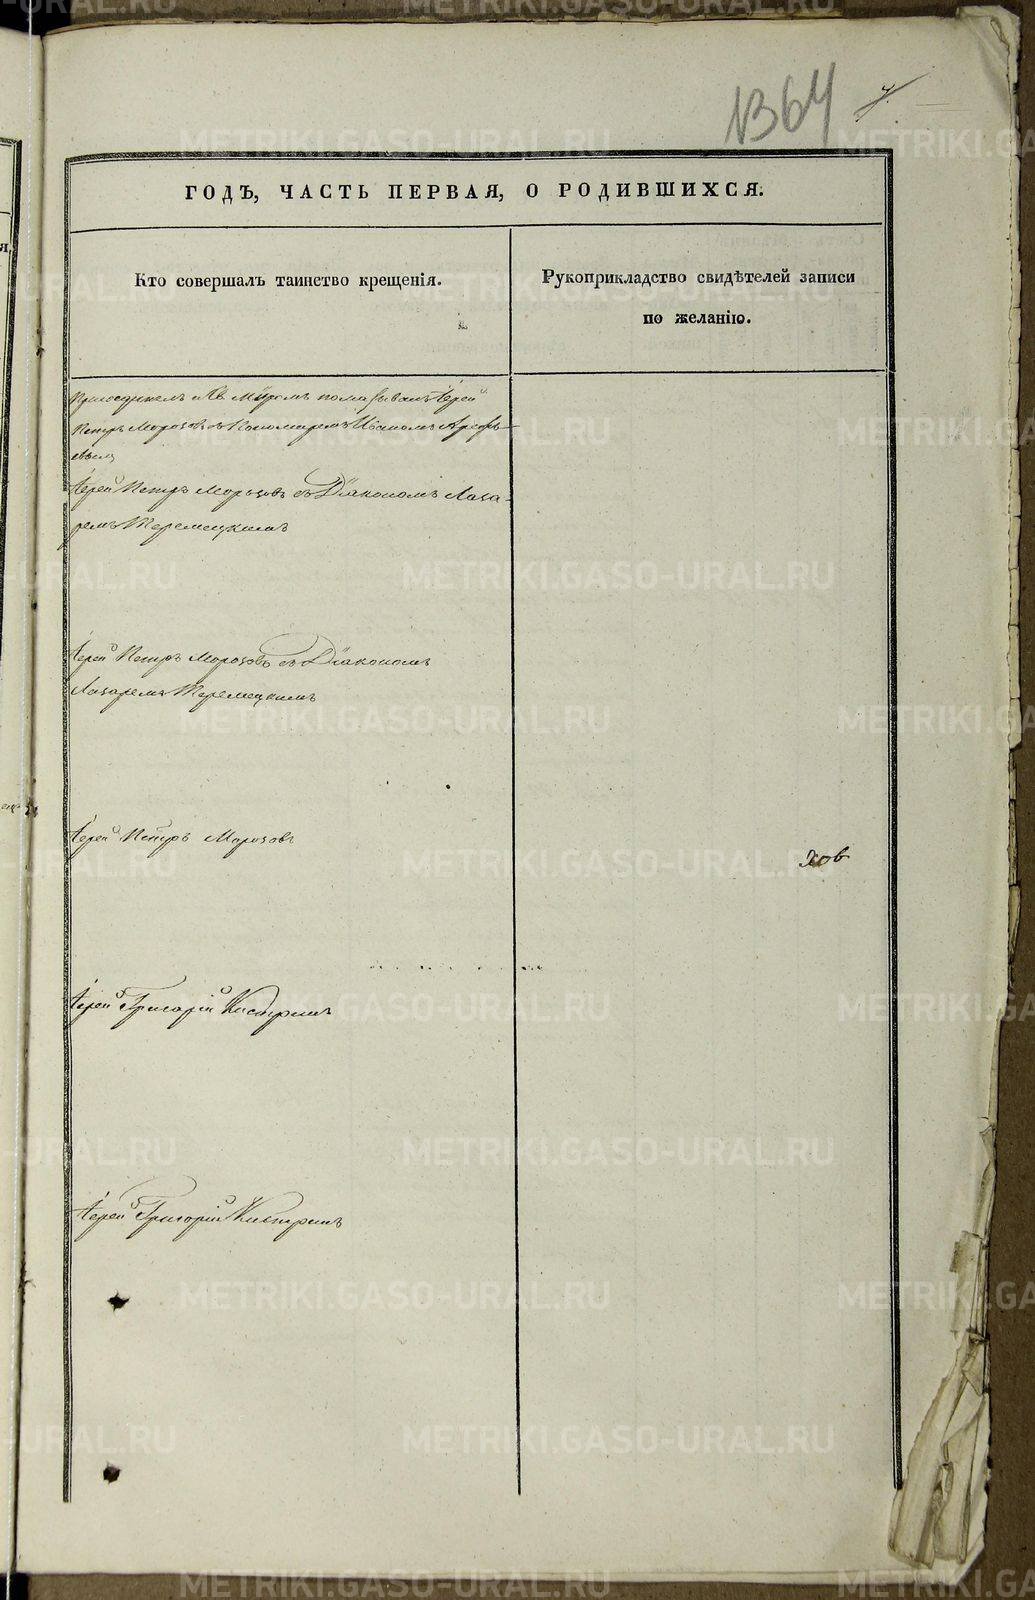 1364
ГОДЪ, ЧАСТЬ ПЕРВАЯ, О РОДИВШИХСЯ.
Кто совершалъ таинство крещенія.
Рукоприкладство свидѣтелей записи
по желанію.
Св. Мѵромъ помазывалъ Іерей
Петръ Морозовъ съ Пономаремъ Иваномъ Арефь-
евымъ
Іерей Петръ Морозовъ съ Діакономъ Лаза-
ремъ Теремецкимъ
Іерей Петръ Морозовъ съ Діакономъ
Лазаремъ Теремецкимъ
Іерей Петръ Морозовъ
хов
Іерей Григорій Кистринъ
Іерей Григорій Кистринъ
METRIKI.GASO-URAL.RU